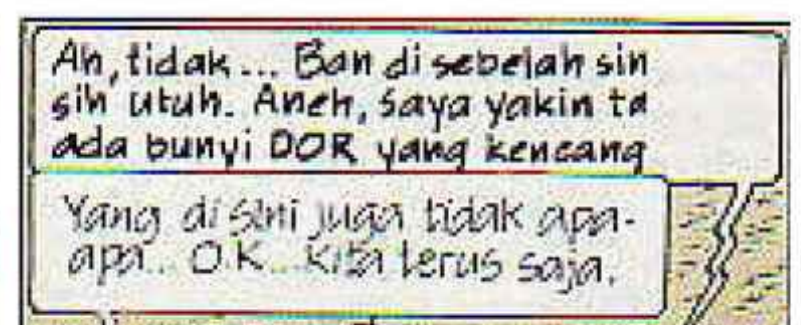 Ah, tidak... Ban di sebelah sin
sih utuh. Aneh, saya yakin ta
ada bunyi DOR yang kencang
Yang di sini juga tidak apa-
apa... O.K... kita terus saja.